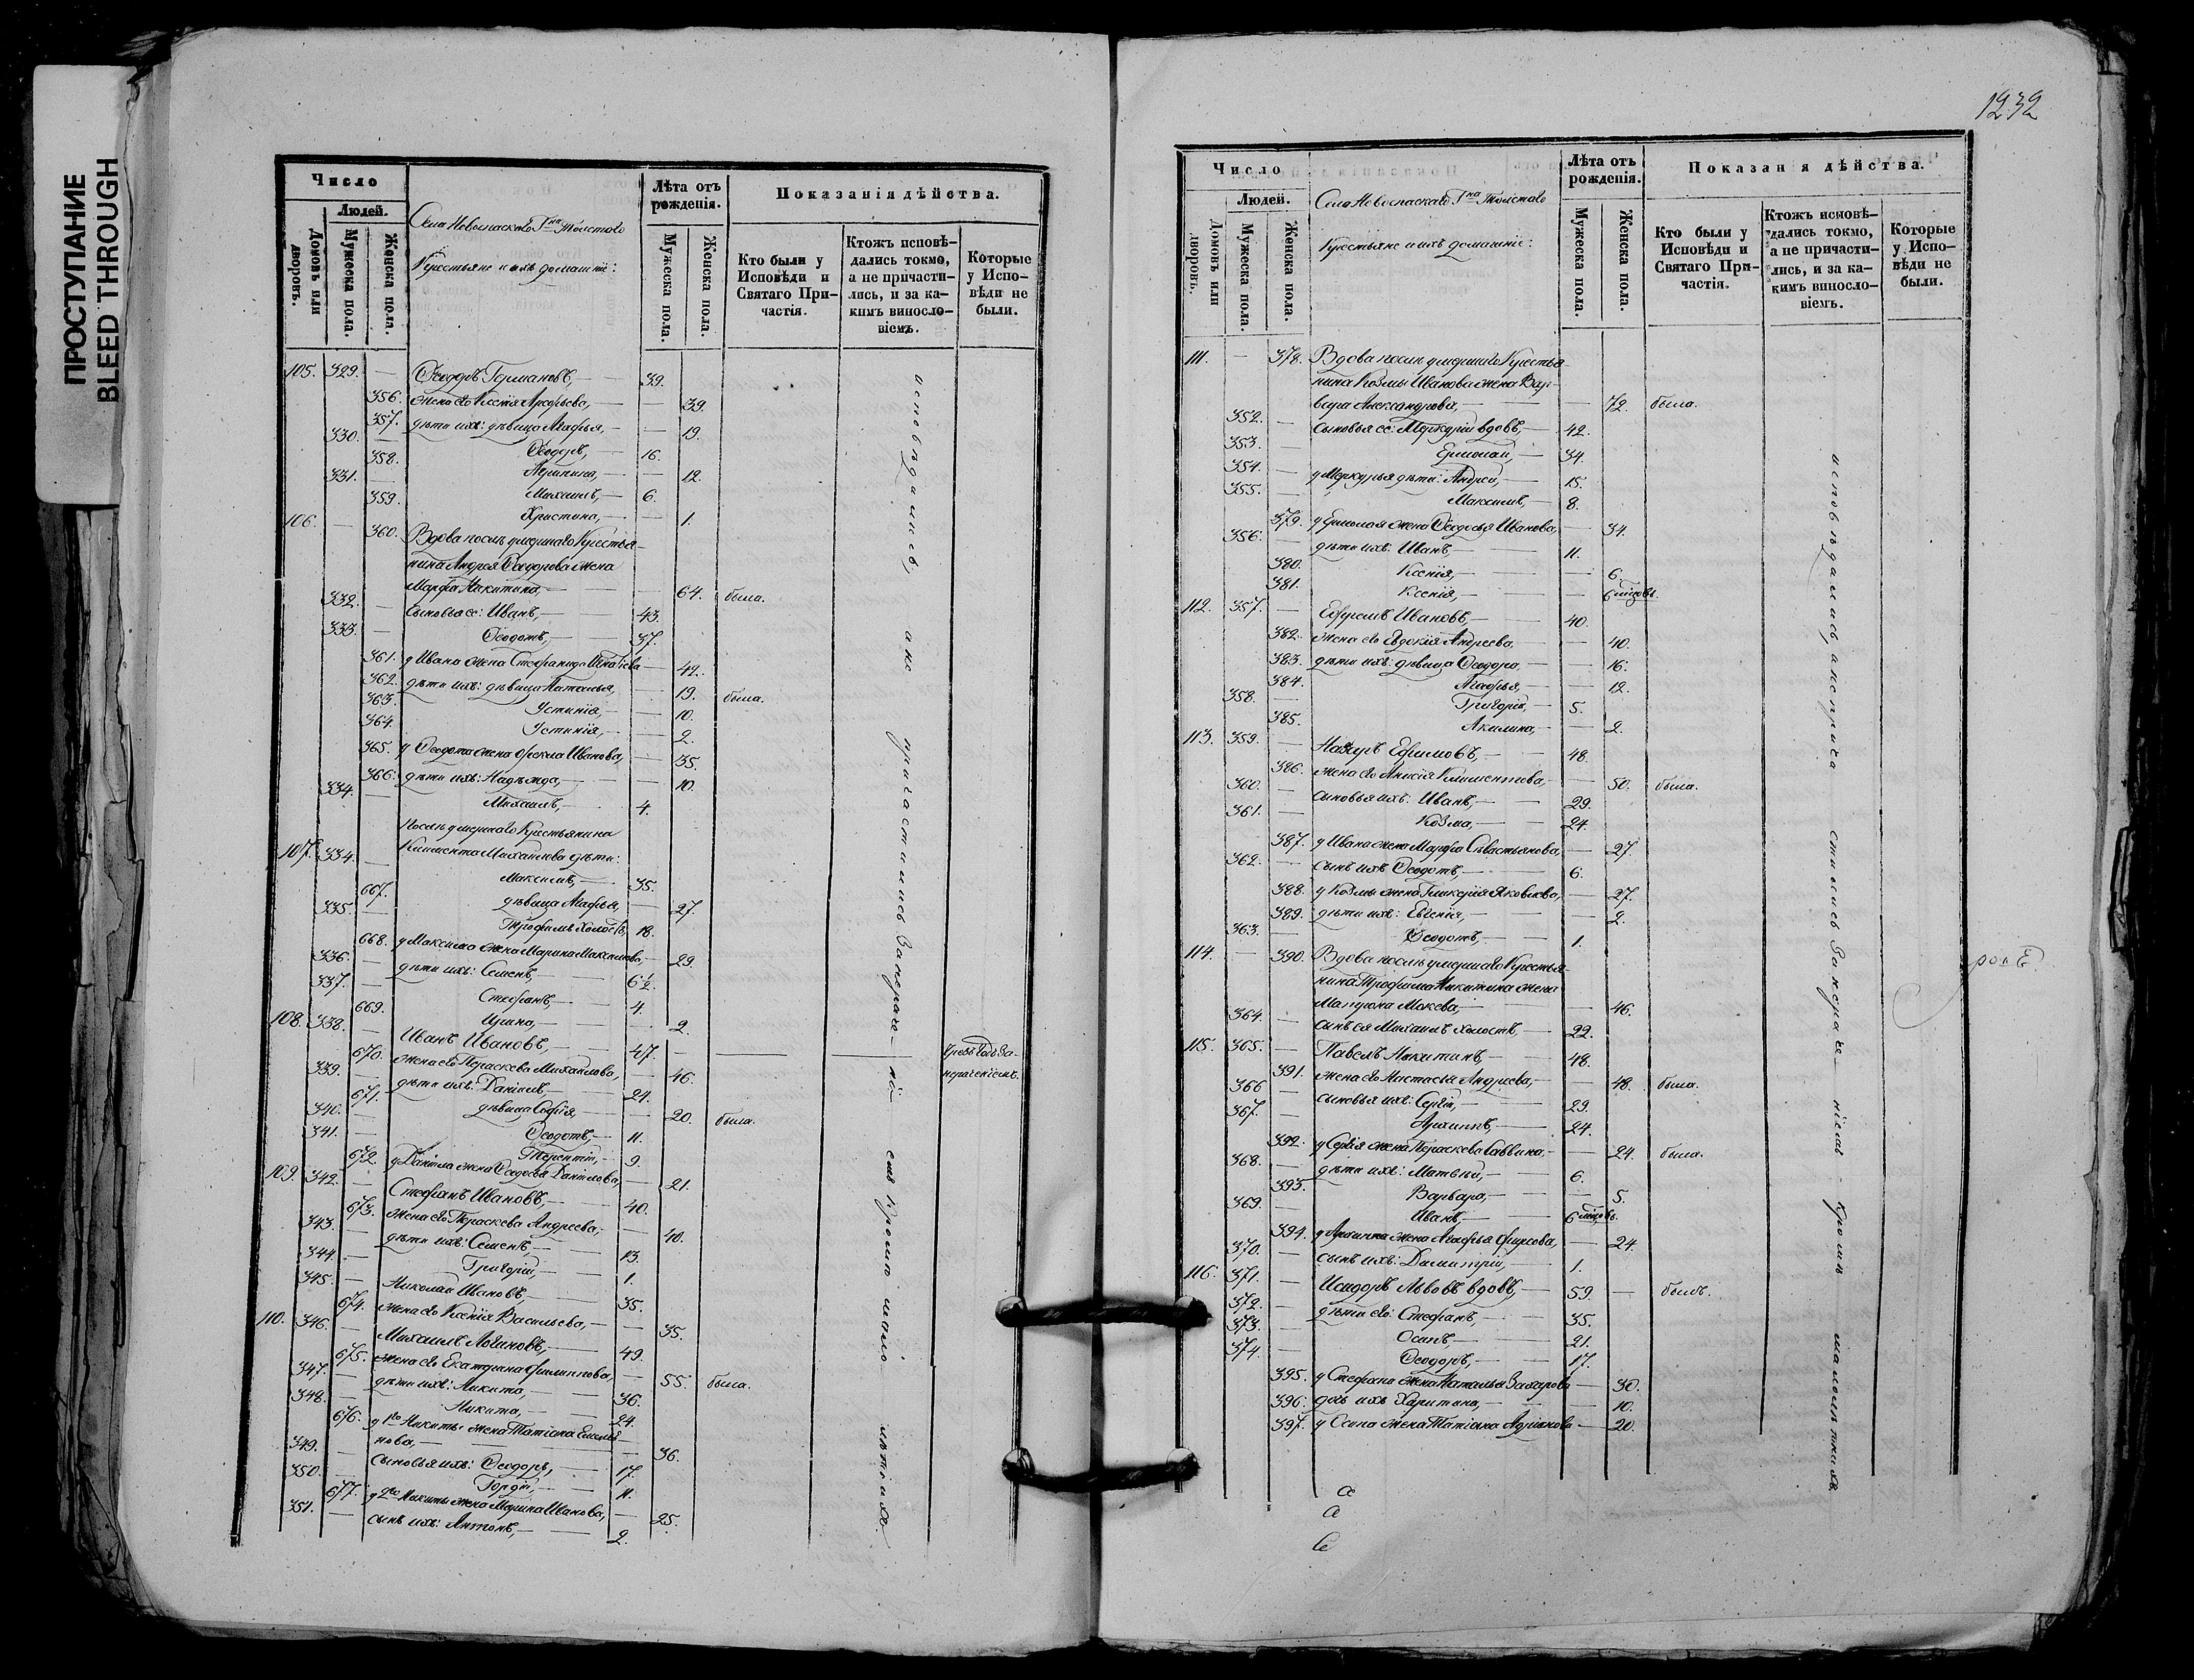 ПРОСТУПАНИЕ
BLEED THROUGH
Число
Людей.
Домовъ или дворовъ.
Мужеска пола.
Женска пола.
Села Новоспаскаго Гна Толстаго
Крестьяне и ихъ домашніе:
Лѣта отъ рожденія.
Мужеска пола.
Женска пола.
Показанія дѣйства.
Кто были у Исповѣди и Святаго При-частія.
Ктожъ исповѣ-дались токмо, а не причасти-лись, и за ка-кимъ винносло-віемъ.
Которые у Испо-вѣди не были.
105. 329. — Ѳеодоръ Германовъ, — 39.
356. жена его Ксенія Арефьева, — — 39.
357. дѣти ихъ: дѣвица Агафья, — — 19.
330. — Ѳеодоръ, — 16.
358. Акилина, — — 12.
331. — Михаилъ, — 6.
359. Христина, — — 1.
106. — 360. Вдова послѣ умершаго Крестья-
нина Андрея Ѳеодорова жена
Марфа Никитина, — — 64. была.
332. — Сыновья ее: Иванъ, — 43.
333. — Ѳеодотъ, — 37.
361. у Ивана жена Стефанида Игнатьева — 42.
362. дѣти ихъ: дѣвица Наталья, — 19. была.
363. Устинія, — 10.
364. Устинія, — 2.
365. у Ѳеодота жена Фекла Иванова, — 35.
366. дѣти ихъ: Надежда, — — 10.
334. — Михаилъ, — 4.
Послѣ умершаго Крестьянина
107. 334. — Климента Михайлова дѣти:
Максимъ, — 35.
667. дѣвица Агафья, — 27.
335. — Трофимъ холостъ, 18.
668. у Максима жена Марина Максимова, — 29.
336. — дѣти ихъ: Семенъ, — 6½.
337. — Стефанъ, — 4.
669. Ирина, — — 2.
108. 338. — Иванъ Ивановъ, — 47. —
670. жена его Параскева Михайлова, — 46.
339. — дѣти ихъ: Даніилъ, — 24.
671. дѣвица Софія, — 20. была.
340. — Ѳеодотъ, — 11.
341. — Терентій, — 9.
672. у Даніила жена Ѳеодосья Данилова, — 21.
109. 342. — Стефанъ Ивановъ, — 40.
673. жена его Параскева Андреева, — 40.
343. — дѣти ихъ: Семенъ, — 13.
344. — Григорій, — 1.
345. — Николай Ивановъ, — 35.
674. жена его Ксенія Васильева, — 35.
110. 346. — Михаилъ Логиновъ, — 49.
675. жена его Екатерина Филиппова, — 55. была.
347. — дѣти ихъ: Никита, — 36.
348. — Никита, — 24.
676. у 1го Никиты жена Татіана Емелья-
нова, — — 36.
349. — Сыновья ихъ: Ѳеодоръ, — 17.
350. — Гордій, — 11.
677. у 2го Никиты жена Марина Иванова, — 25.
351. — сынъ ихъ: Антонъ, — 2.
исповѣдались, а не причастились за нераче-ніемъ кромѣ малолѣтнихъ.
1232
Число
Людей.
Домовъ или дворовъ.
Мужеска пола.
Женска пола.
Села Новоспаскаго Гна Толстаго
Крестьяне и ихъ домашніе:
Лѣта отъ рожденія.
Мужеска пола.
Женска пола.
Показан я дѣйства.
Кто были у Исповѣди и Святаго При-частія.
Ктожъ исповѣ-дались токмо, а не причасти-лись, и за ка-кимъ винносло-віемъ.
Которые у Испо-вѣди не были.
111. — 378. Вдова послѣ умершаго Крестья-
нина Козмы Иванова жена Вар-
вара Александрова, — — 72. была.
352. — сыновья ее: Меркурій вдовъ, — 42.
353. — Ермолай, — 34.
354. — у Меркурья дѣти: Андрей, — 15.
355. — Максимъ, — 8.
379. у Ермолая жена Ѳеодосья Иванова, — 34.
356. — дѣти ихъ: Иванъ, — 11.
380. Ксенія, — — 6.
381. Ксенія, — — 6 мѣсяцовъ.
112. 357. — Ефремъ Ивановъ, — 40.
382. жена его Евдокія Андреева, — 40.
383. дѣти ихъ: дѣвица Ѳеодора, — 16.
384. Агафья, — — 12.
358. — Григорій, — 5.
385. Акилина, — — 2.
113. 359. — Назаръ Ефимовъ, — 48.
386. жена его Анисія Климентова, — 50. была.
360. — сыновья ихъ: Иванъ, — 29.
361. — Козма, — 24.
387. у Ивана жена Марфа Севастьянова, — 27.
362. — сынъ ихъ Ѳеодотъ, — 6.
388. у Козмы жена Гликерія Яковлева, — 27.
389. дѣти ихъ: Евгенія, — — 2.
363. — Ѳеодотъ, — 1.
114. — 390. Вдова послѣ умершаго Крестья-
нина Трофима Никитина жена
Матрона Мокеева, — — 46.
364. — сынъ ея Михаилъ холостъ, — 22.
115. 365. — Павелъ Никитинъ, — 48.
391. жена его Настасья Андреева, — 48. была.
366 — сыновья ихъ: Сергій, — 29.
367. — Архиппъ, — 24.
392. у Сергія жена Параскева Саввина, — 24. была.
368. — дѣти ихъ: Матвѣй, — 6.
393. Варвара, — — 5.
369. — Иванъ, — 6 мѣсяцовъ.
394. у Архиппа жена Агафья Фирсова, — 24.
370. — сынъ ихъ: Димитрій, — 1.
116. 371. — Исидоръ Львовъ вдовъ, — 59. — былъ.
372. — дѣти его: Стефанъ, — 35.
373. — Осипъ, — 21.
374. — Ѳеодоръ, — 17.
395. у Стефана жена Наталья Захарова — 30.
396. дочь ихъ Харитина, — — 10.
397. у Осипа жена Татіана Адріанова — 20.
исповѣдались, а не прича-стились за нераче-ніемъ кромѣ малолѣтнихъ